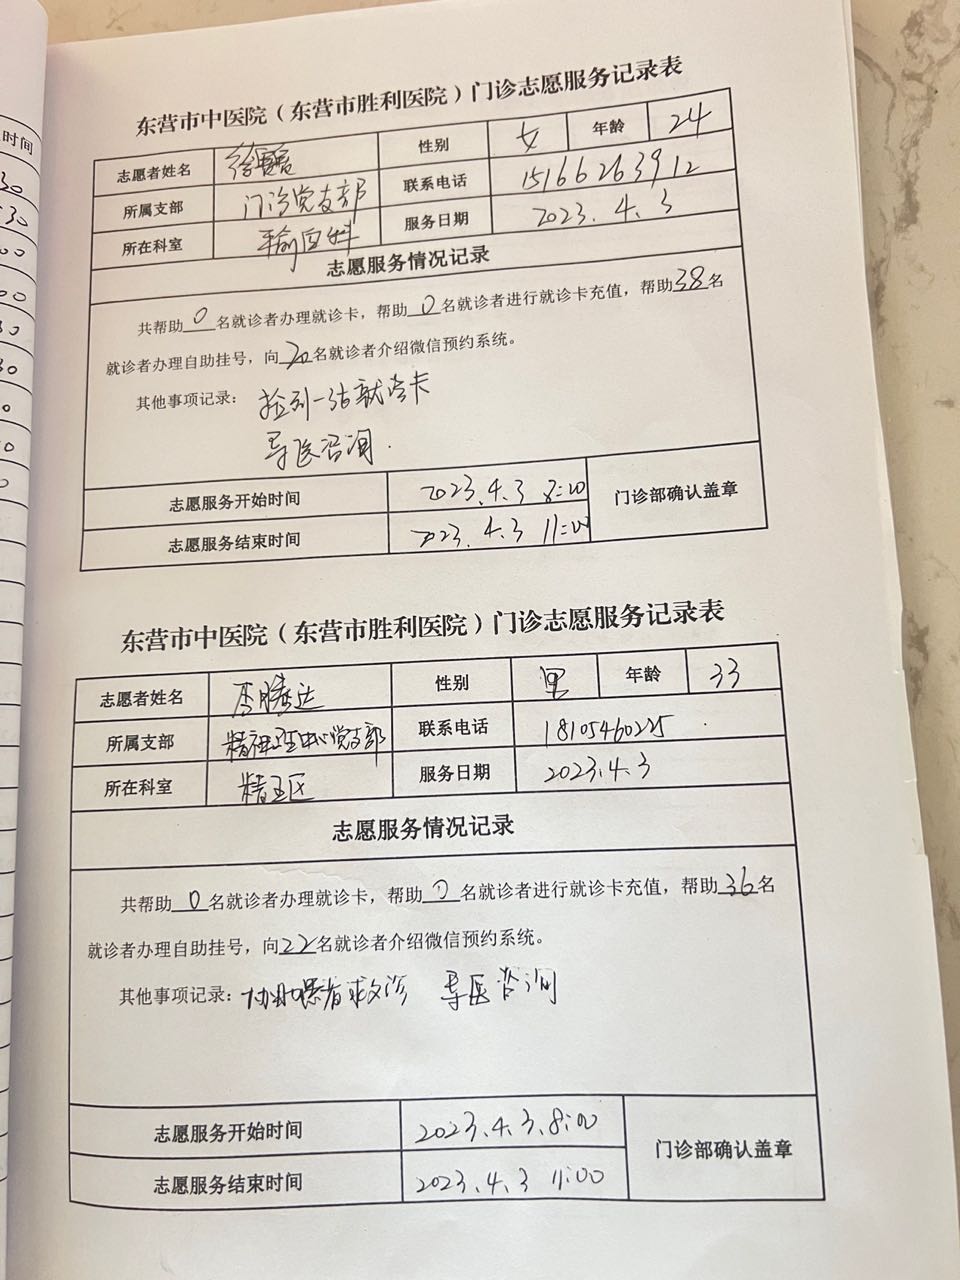 时间
30
30
00
00
30
30
0
0
0
东营市中医院（东营市胜利医院）门诊志愿服务记录表
志愿者姓名 性别 女 年龄 24
所属支部 门诊党支部 联系电话 15166263912
所在科室 输血科 服务日期 2023.4.3
志愿服务情况记录
共帮助0名就诊者办理就诊卡，帮助0名就诊者进行就诊卡充值，帮助38名
就诊者办理自助挂号，向20名就诊者介绍微信预约系统。
其他事项记录： 捡到一张就诊卡
导医咨询.
志愿服务开始时间 2023.4.3 8:00 门诊部确认盖章
志愿服务结束时间 2023.4.3 11:00
东营市中医院（东营市胜利医院）门诊志愿服务记录表
志愿者姓名 李腾达 性别 男 年龄 33
所属支部 精神卫生中心党支部 联系电话 18105460225
所在科室 精五区 服务日期 2023.4.3
志愿服务情况记录
共帮助0名就诊者办理就诊卡，帮助0名就诊者进行就诊卡充值，帮助36名
就诊者办理自助挂号，向22名就诊者介绍微信预约系统。
其他事项记录： 协助患者就诊 导医咨询
志愿服务开始时间 2023.4.3.8:00 门诊部确认盖章
志愿服务结束时间 2023.4.3 11:00